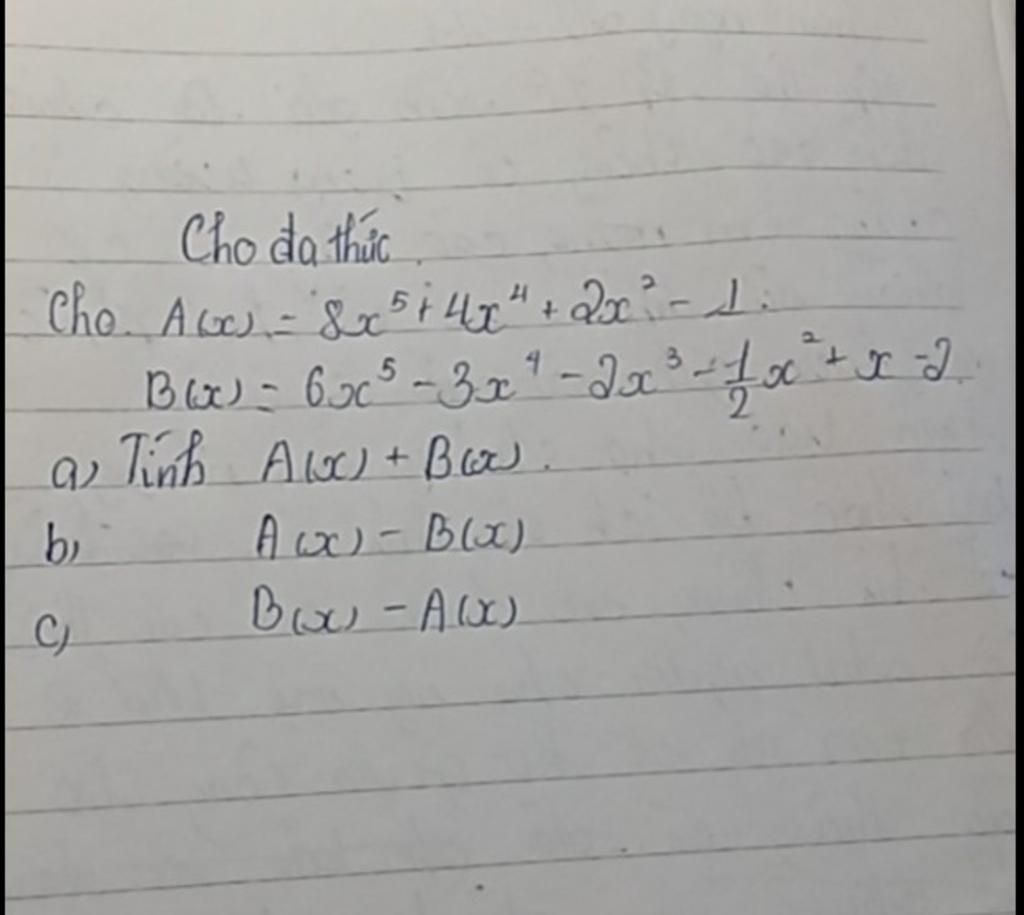 Cho đa thức.
Cho. A(x) = 8x⁵ + 4x⁴ + 2x² - 1.
B(x) = 6x⁵ - 3x⁴ - 2x³ - 1/2 x² + x - 2.
a) Tính A(x) + B(x).
b) A(x) - B(x)
c) B(x) - A(x)